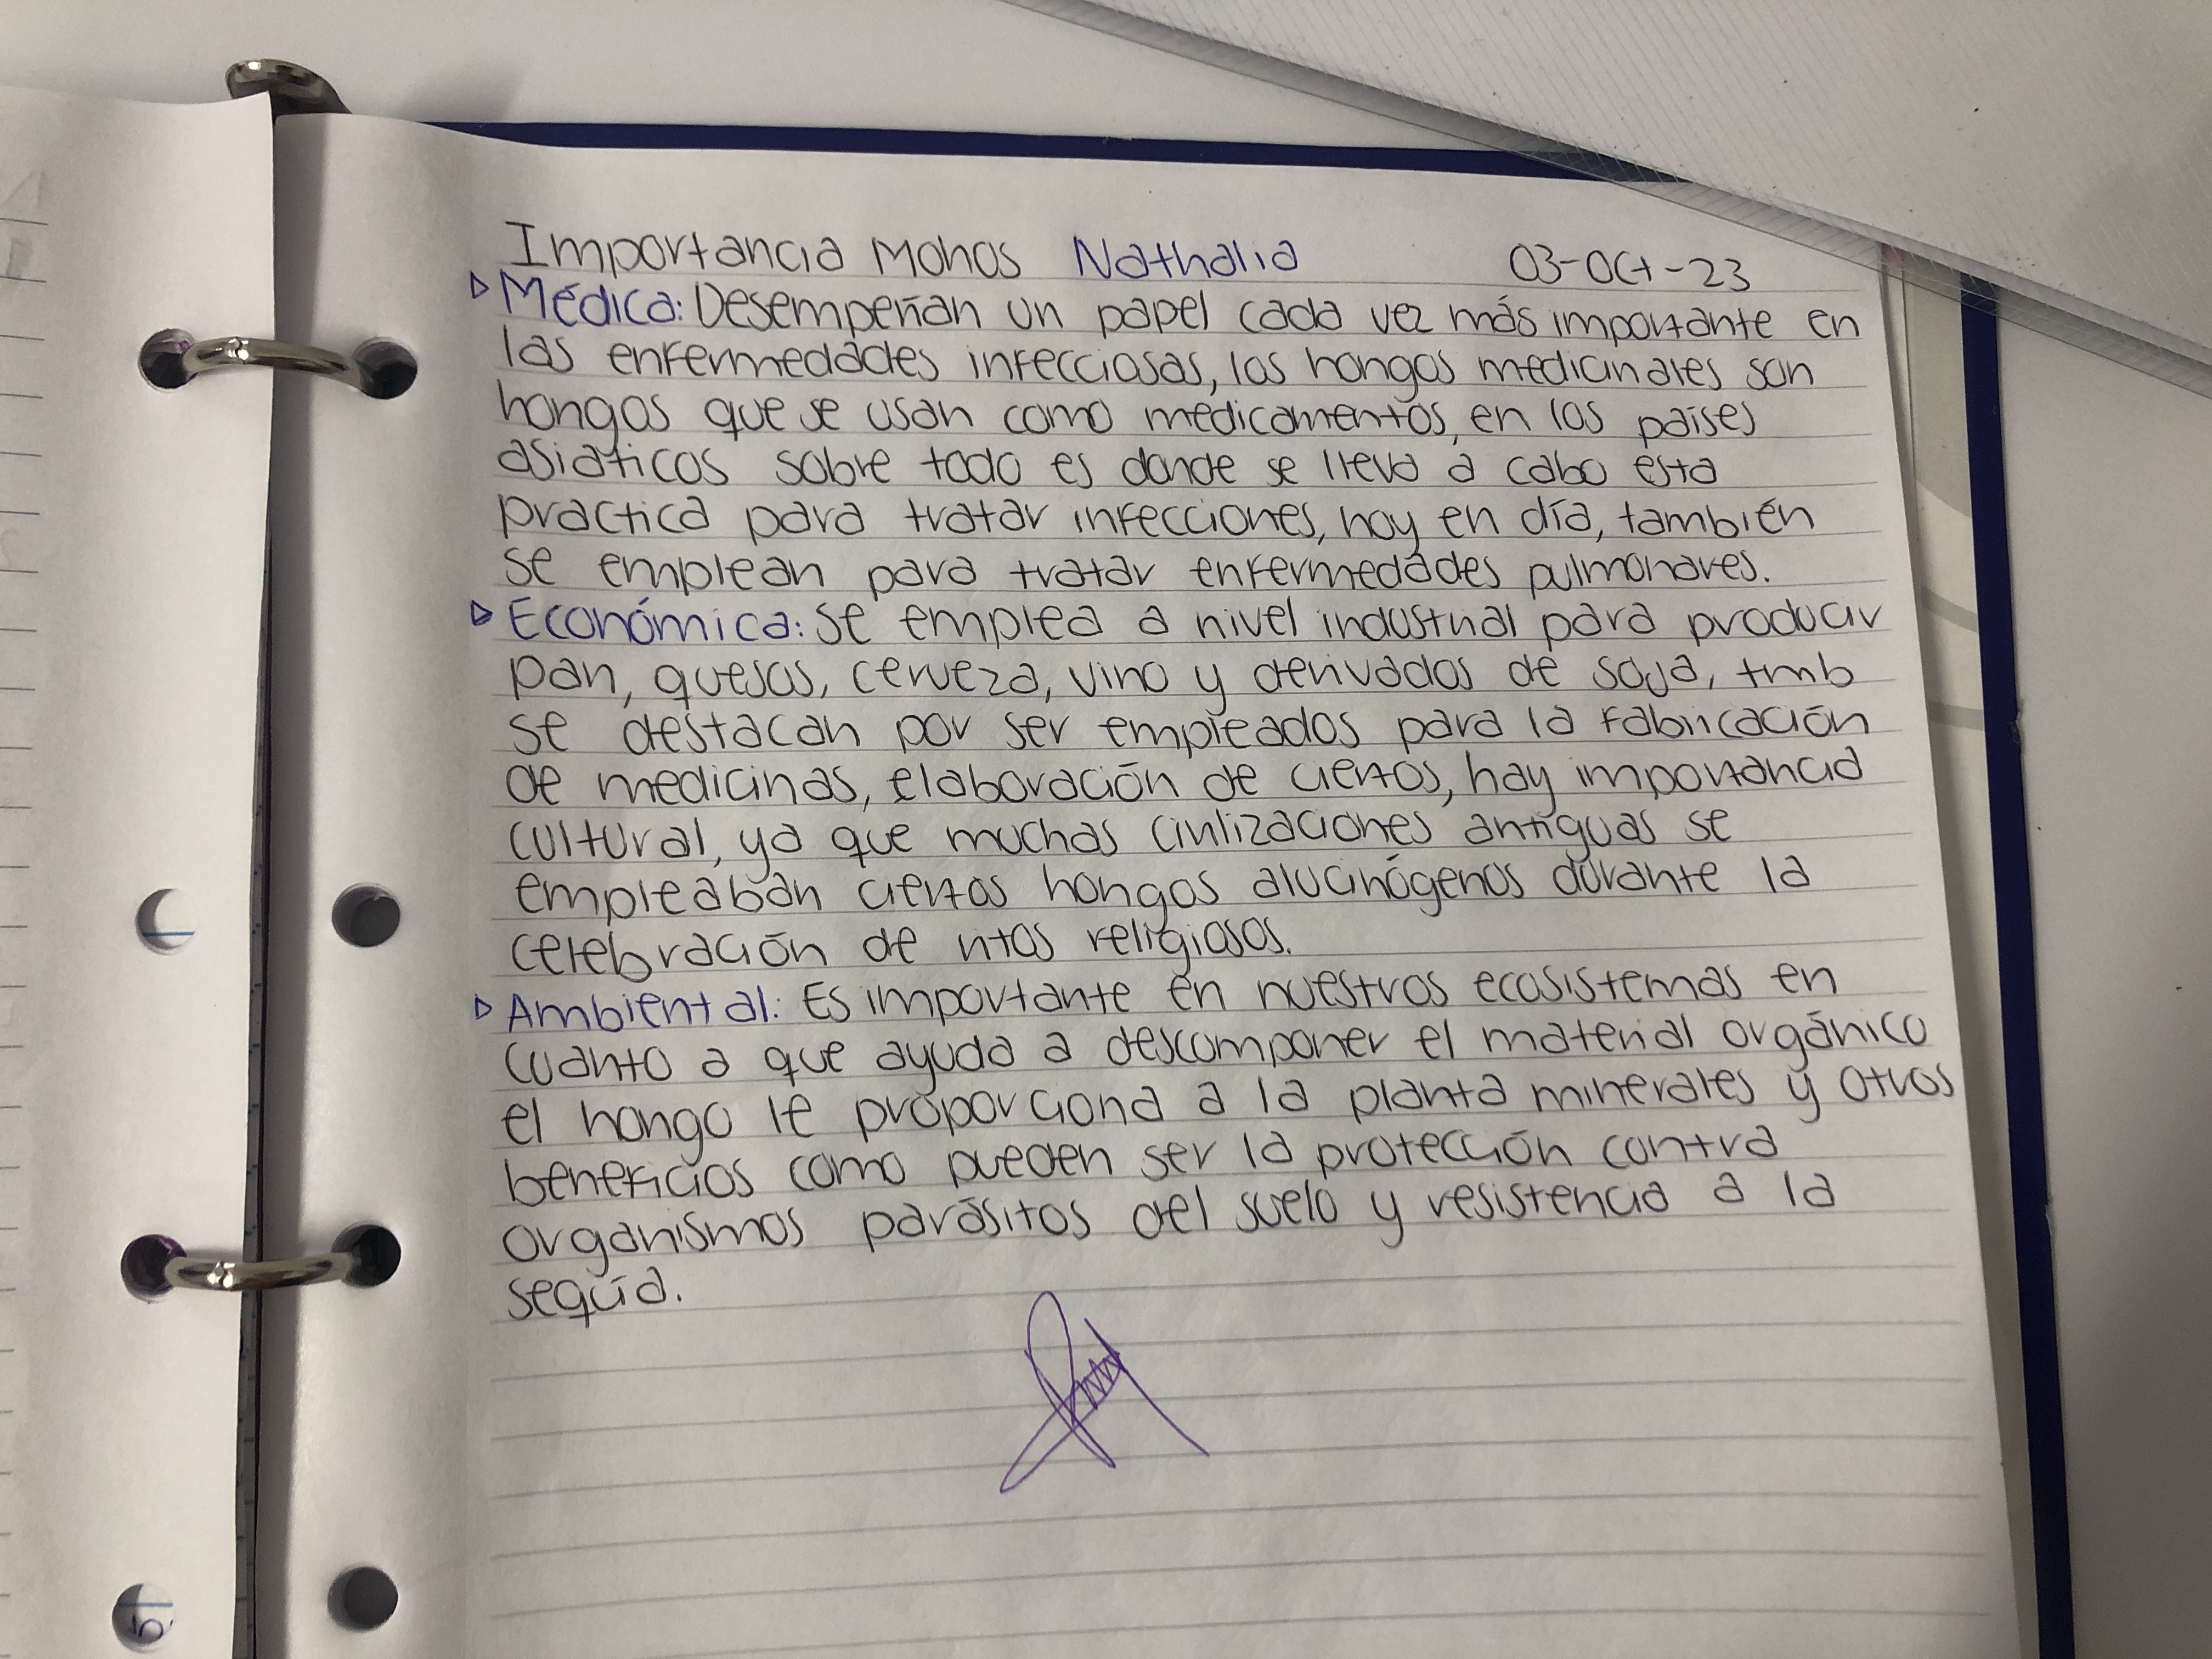 Importancia Mohos Nathalia 03-Oct-23
▷ Médica: Desempeñan un papel cada vez más importante en
las enfermedades infecciosas, los hongos medicinales son
hongos que se usan como medicamentos, en los países
asiáticos sobre todo es donde se lleva a cabo esta
practica para tratar infecciones, hoy en día, también
se emplean para tratar enfermedades pulmonares.
▷ Económica: Se emplea a nivel industrial para producir
pan, quesos, cerveza, vino y derivados de soya, tmb
se destacan por ser empleados para la fabricación
de medicinas, elaboración de ciertos, hay importancia
cultural, ya que muchas civilizaciones antiguas se
empleaban ciertos hongos alucinógenos durante la
celebración de ritos religiosos.
▷ Ambiental: Es importante en nuestros ecosistemas en
cuanto a que ayuda a descomponer el material orgánico
el hongo le proporciona a la planta minerales y otros
beneficios como pueden ser la protección contra
organismos parásitos del suelo y resistencia a la
sequía.